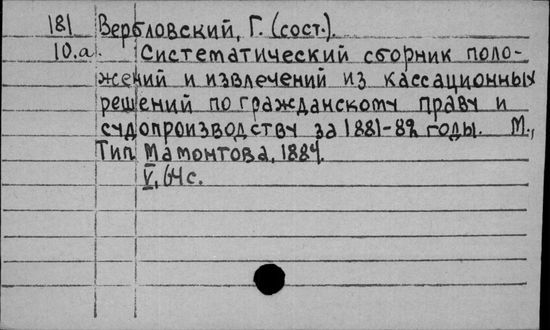 181 Вербловский, Г. (сост.).
10.а. Систематический сборник поло-
жений и извлечений из кассационных
решений по гражданскому праву и
судопроизводству за 1881-82 годы. М.,
Тип. Мамонтова, 1884.
V, 64 с.